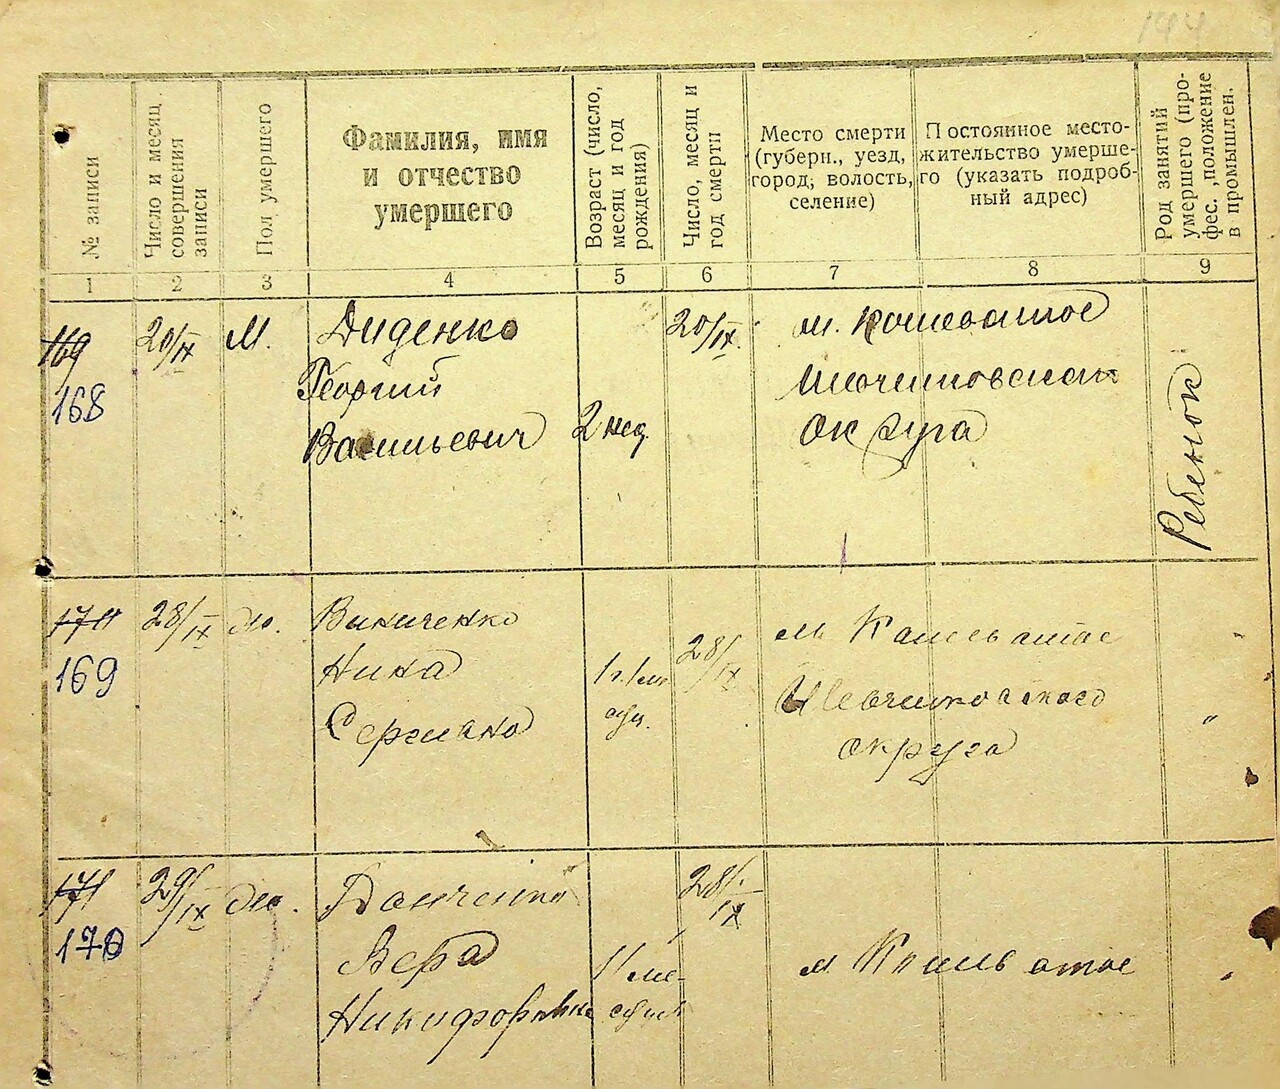 144
№ записи
Число и месяц
совершения
записи
Пол умершего
Фамилия, имя
и отчество
умершего
Возраст (число,
месяц и год
рождения)
Число, месяц и
год смерти
Место смерти
(губерн., уезд,
город, волость,
селение)
Постоянное место-
жительство умерше-
го (указать подроб-
ный адрес)
Род занятий
умершего (про-
фес., положение
в промышлен.
1 2 3 4 5 6 7 8 9
169
168
20/IX
М.
Диденко
Георгий
Васильевич
2 нед.
20/IX.
м. Кошеватое
Шевченковской
округа
Ребенок
170
169
28/IX
Виниченко
Нина
Сергиевна
1 г. 1 ме
сяц.
28/IX
м Кошеватое
Шевченковского
округа
"
171
170
29/IX
Вера
Никифоровна
11 ме-
сяцев
28/IX
м Кошеватое
"